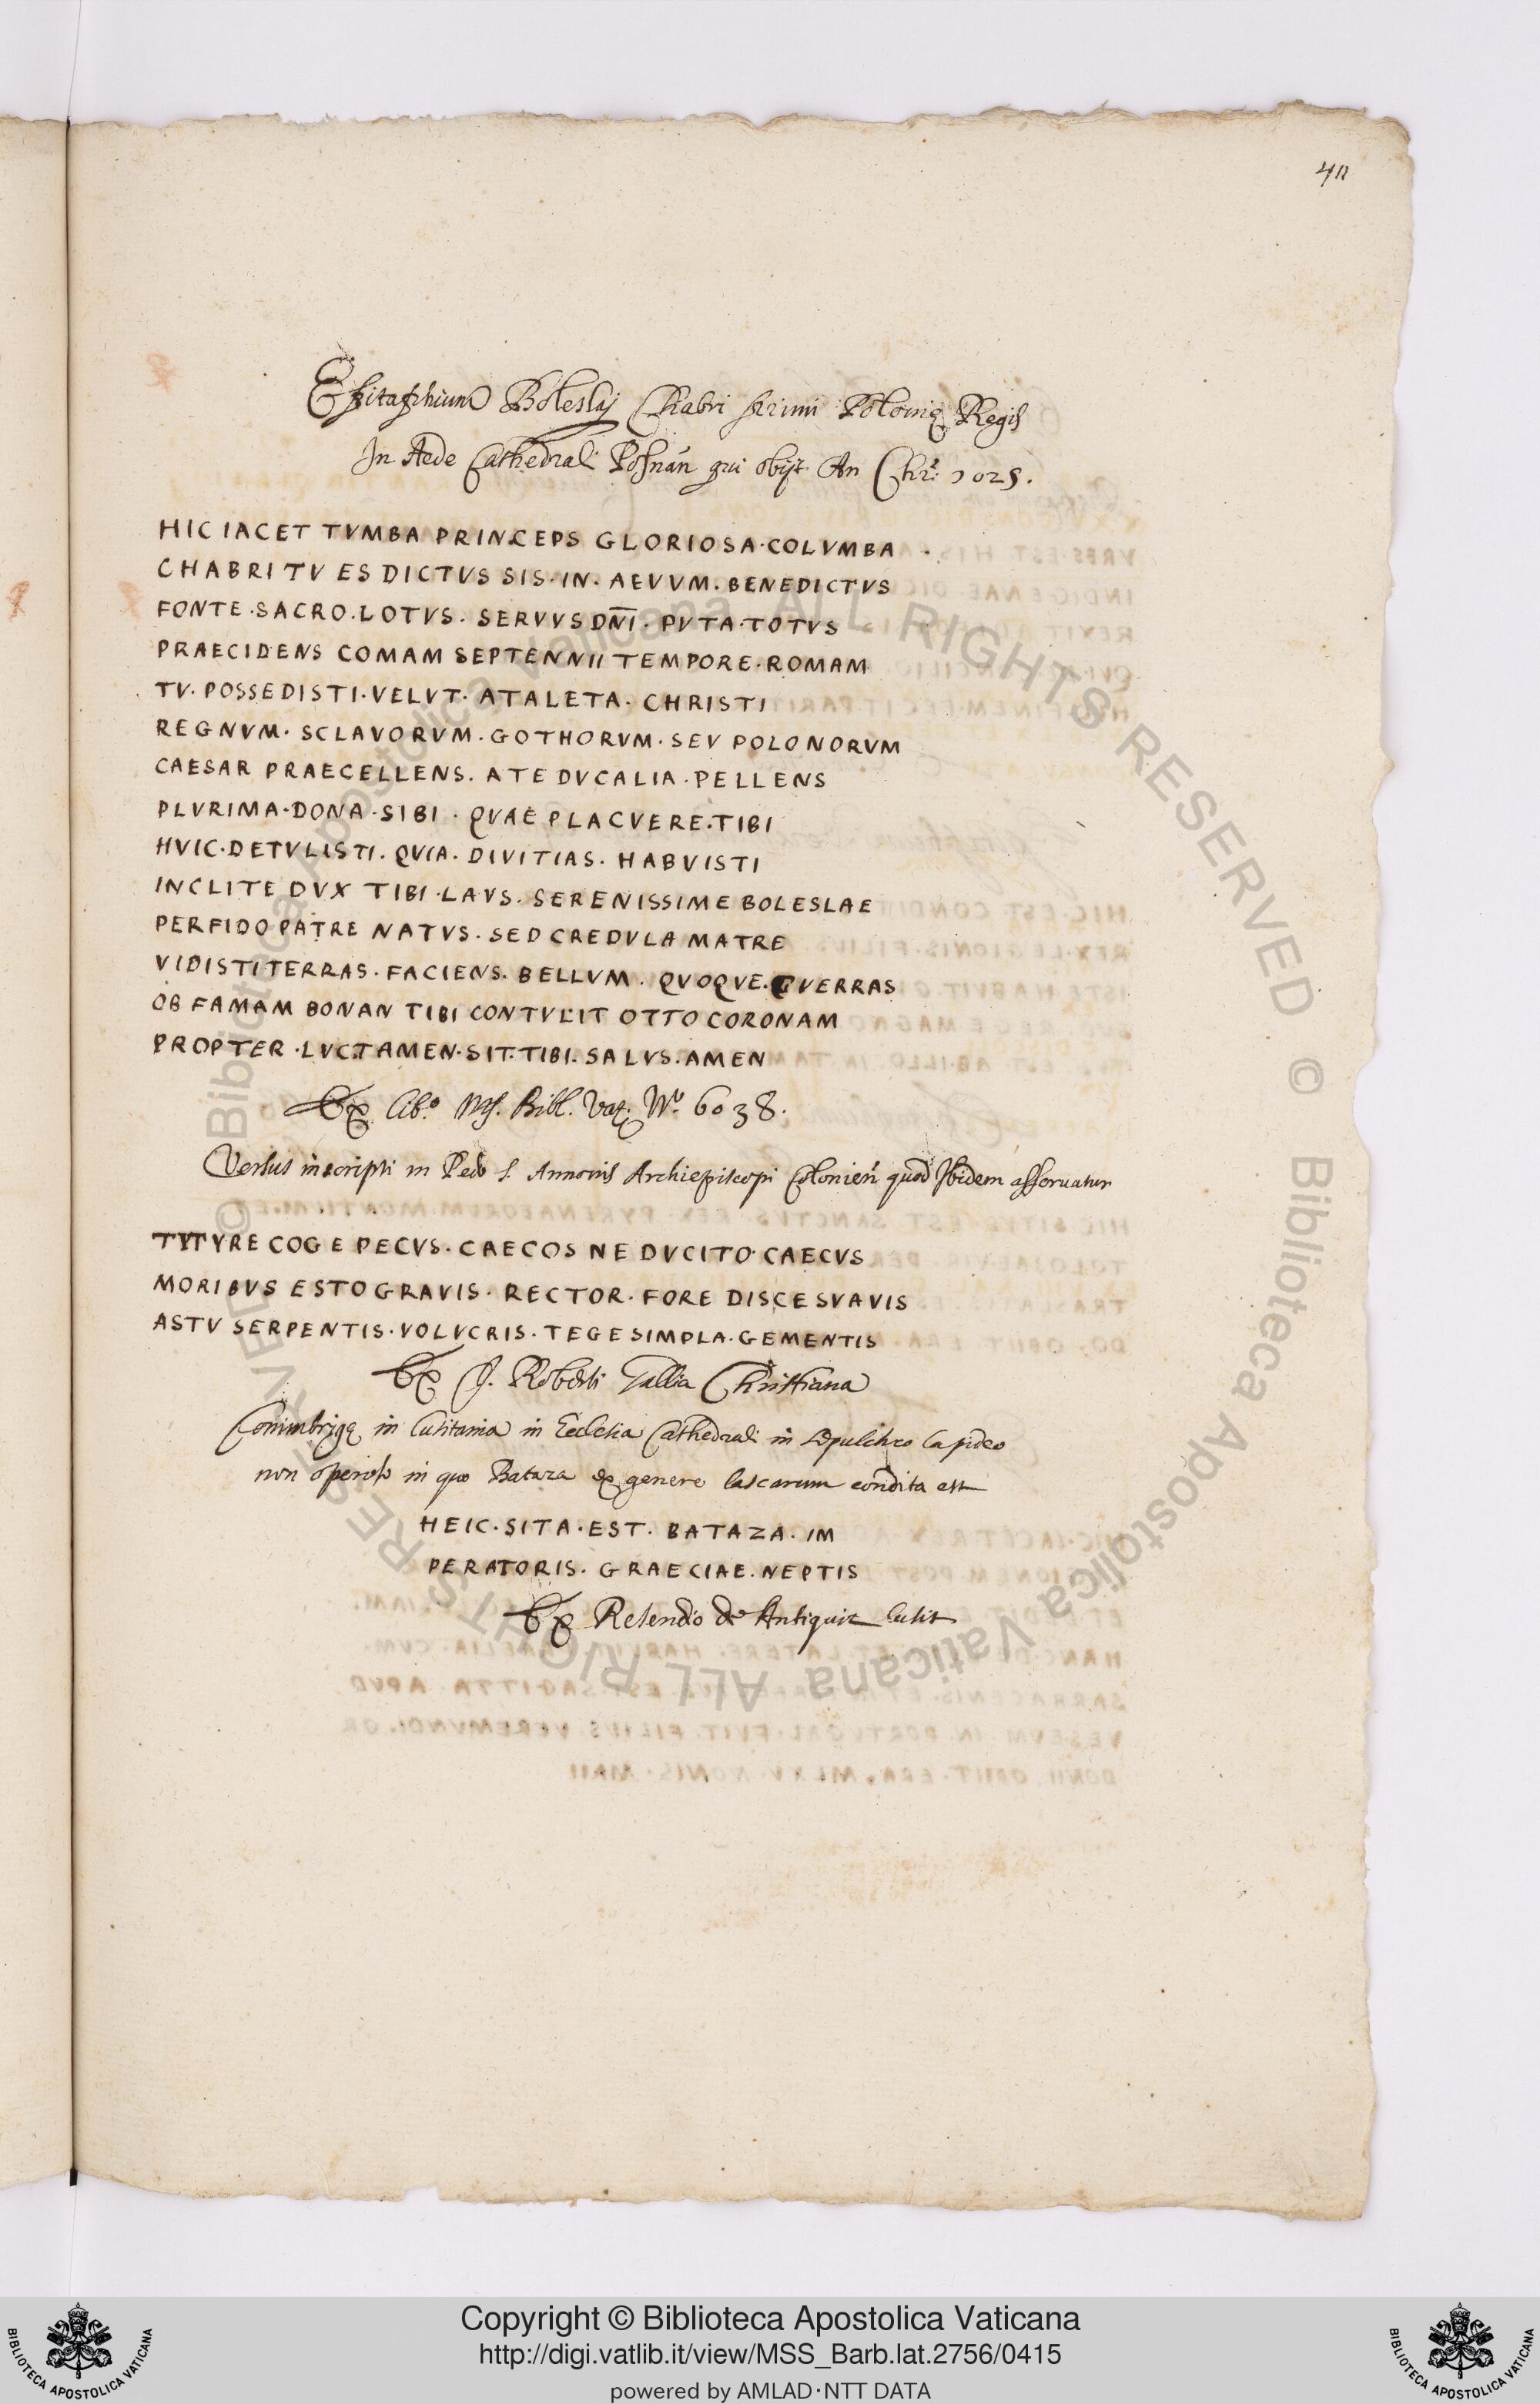 411
Epitaphium Boleslaj Chabri primi Polonię Regis
In Aede Cathedrali Posnan qui obijt An Chri: 1025.
HIC IACET TVMBA PRINCEPS GLORIOSA·COLVMBA ·
CHABRI TV ES DICTVS SIS·IN·AEVVM·BENEDICTVS
FONTE·SACRO·LOTVS·SERVVS DNI·PVTA·TOTVS
PRAECIDENS COMAM SEPTENNII TEMPORE·ROMAM
TV·POSSEDISTI·VELVT·ATALETA·CHRISTI
REGNVM·SCLAVORVM·GOTHORVM·SEV POLONORVM
CAESAR PRAECELLENS·A TE DVCALIA·PELLENS
PLVRIMA·DONA·SIBI·QVAE PLACVERE·TIBI
HVIC·DETVLISTI·QVIA·DIVITIAS·HABVISTI
INCLITE DVX TIBI·LAVS·SERENISSIME BOLESLAE
PERFIDO PATRE NATVS·SED CREDVLA MATRE
VIDISTI TERRAS·FACIENS·BELLVM·QVOQVE·GVERRAS
OB FAMAM BONAN TIBI CONTVLIT OTTO CORONAM
PROPTER·LVCTAMEN·SIT·TIBI·SALVS·AMEN
Ex lib.o Ms. Bibl. Vat. No. 6038.
Versus inscripti in Pedo S. Annonis Archiepiscopi Colonien quod Ibidem asseruatur
TYTYRE COGE PECVS·CAECOS NE DVCITO CAECVS
MORIBVS ESTO GRAVIS·RECTOR·FORE DISCE SVAVIS
ASTV SERPENTIS·VOLVCRIS·TEGE SIMPLA·GEMENTIS
Ex J. Roberti Gallia Christiana
Conimbrigę in Lusitania in Ecclesia Cathedrali in sepulchro lapideo
non operoso in quo Bataza ex genere lascarum condita est
HEIC·SITA·EST·BATAZA·IM
PERATORIS·GRAECIAE·NEPTIS
Ex Resendio de Antiquit Lusit
© Biblioteca Apostolica Vaticana ALL RIGHTS RESERVED © Biblioteca Apostolica Vaticana ALL RIGHTS RESERVED
BIBLIOTECA APOSTOLICA VATICANA
Copyright © Biblioteca Apostolica Vaticana
http://digi.vatlib.it/view/MSS_Barb.lat.2756/0415
powered by AMLAD·NTT DATA
BIBLIOTECA APOSTOLICA VATICANA